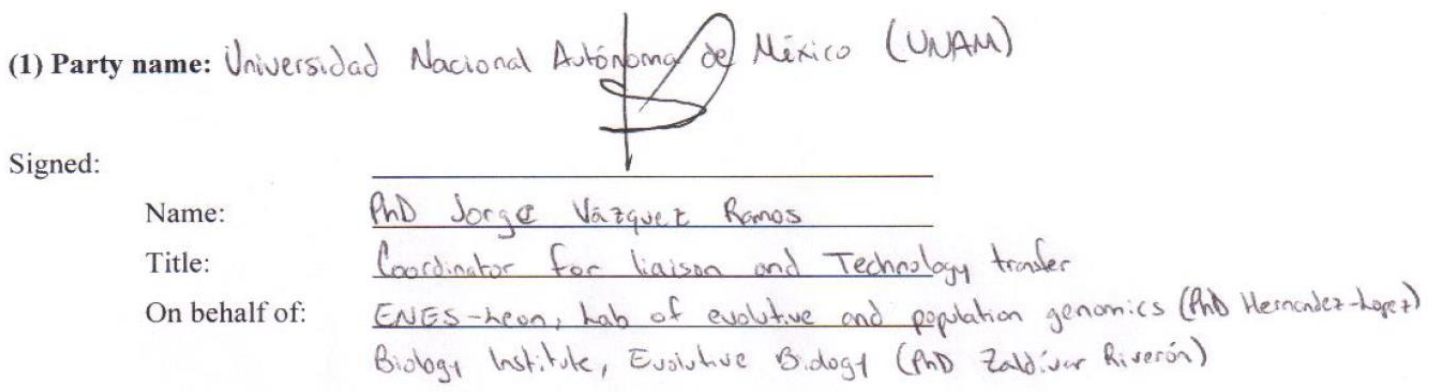 (1) Party name: Universidad Nacional Autónoma de México (UNAM)
Signed:
Name: PhD Jorge Vázquez Ramos
Title: Coordinator for liaison and Technology transfer
On behalf of: ENES-Leon, Lab of evolutive and population genomics (PhD Hernandez-Lopez)
Biology Institute, Evolutive Biology (PhD Zaldívar Riverón)